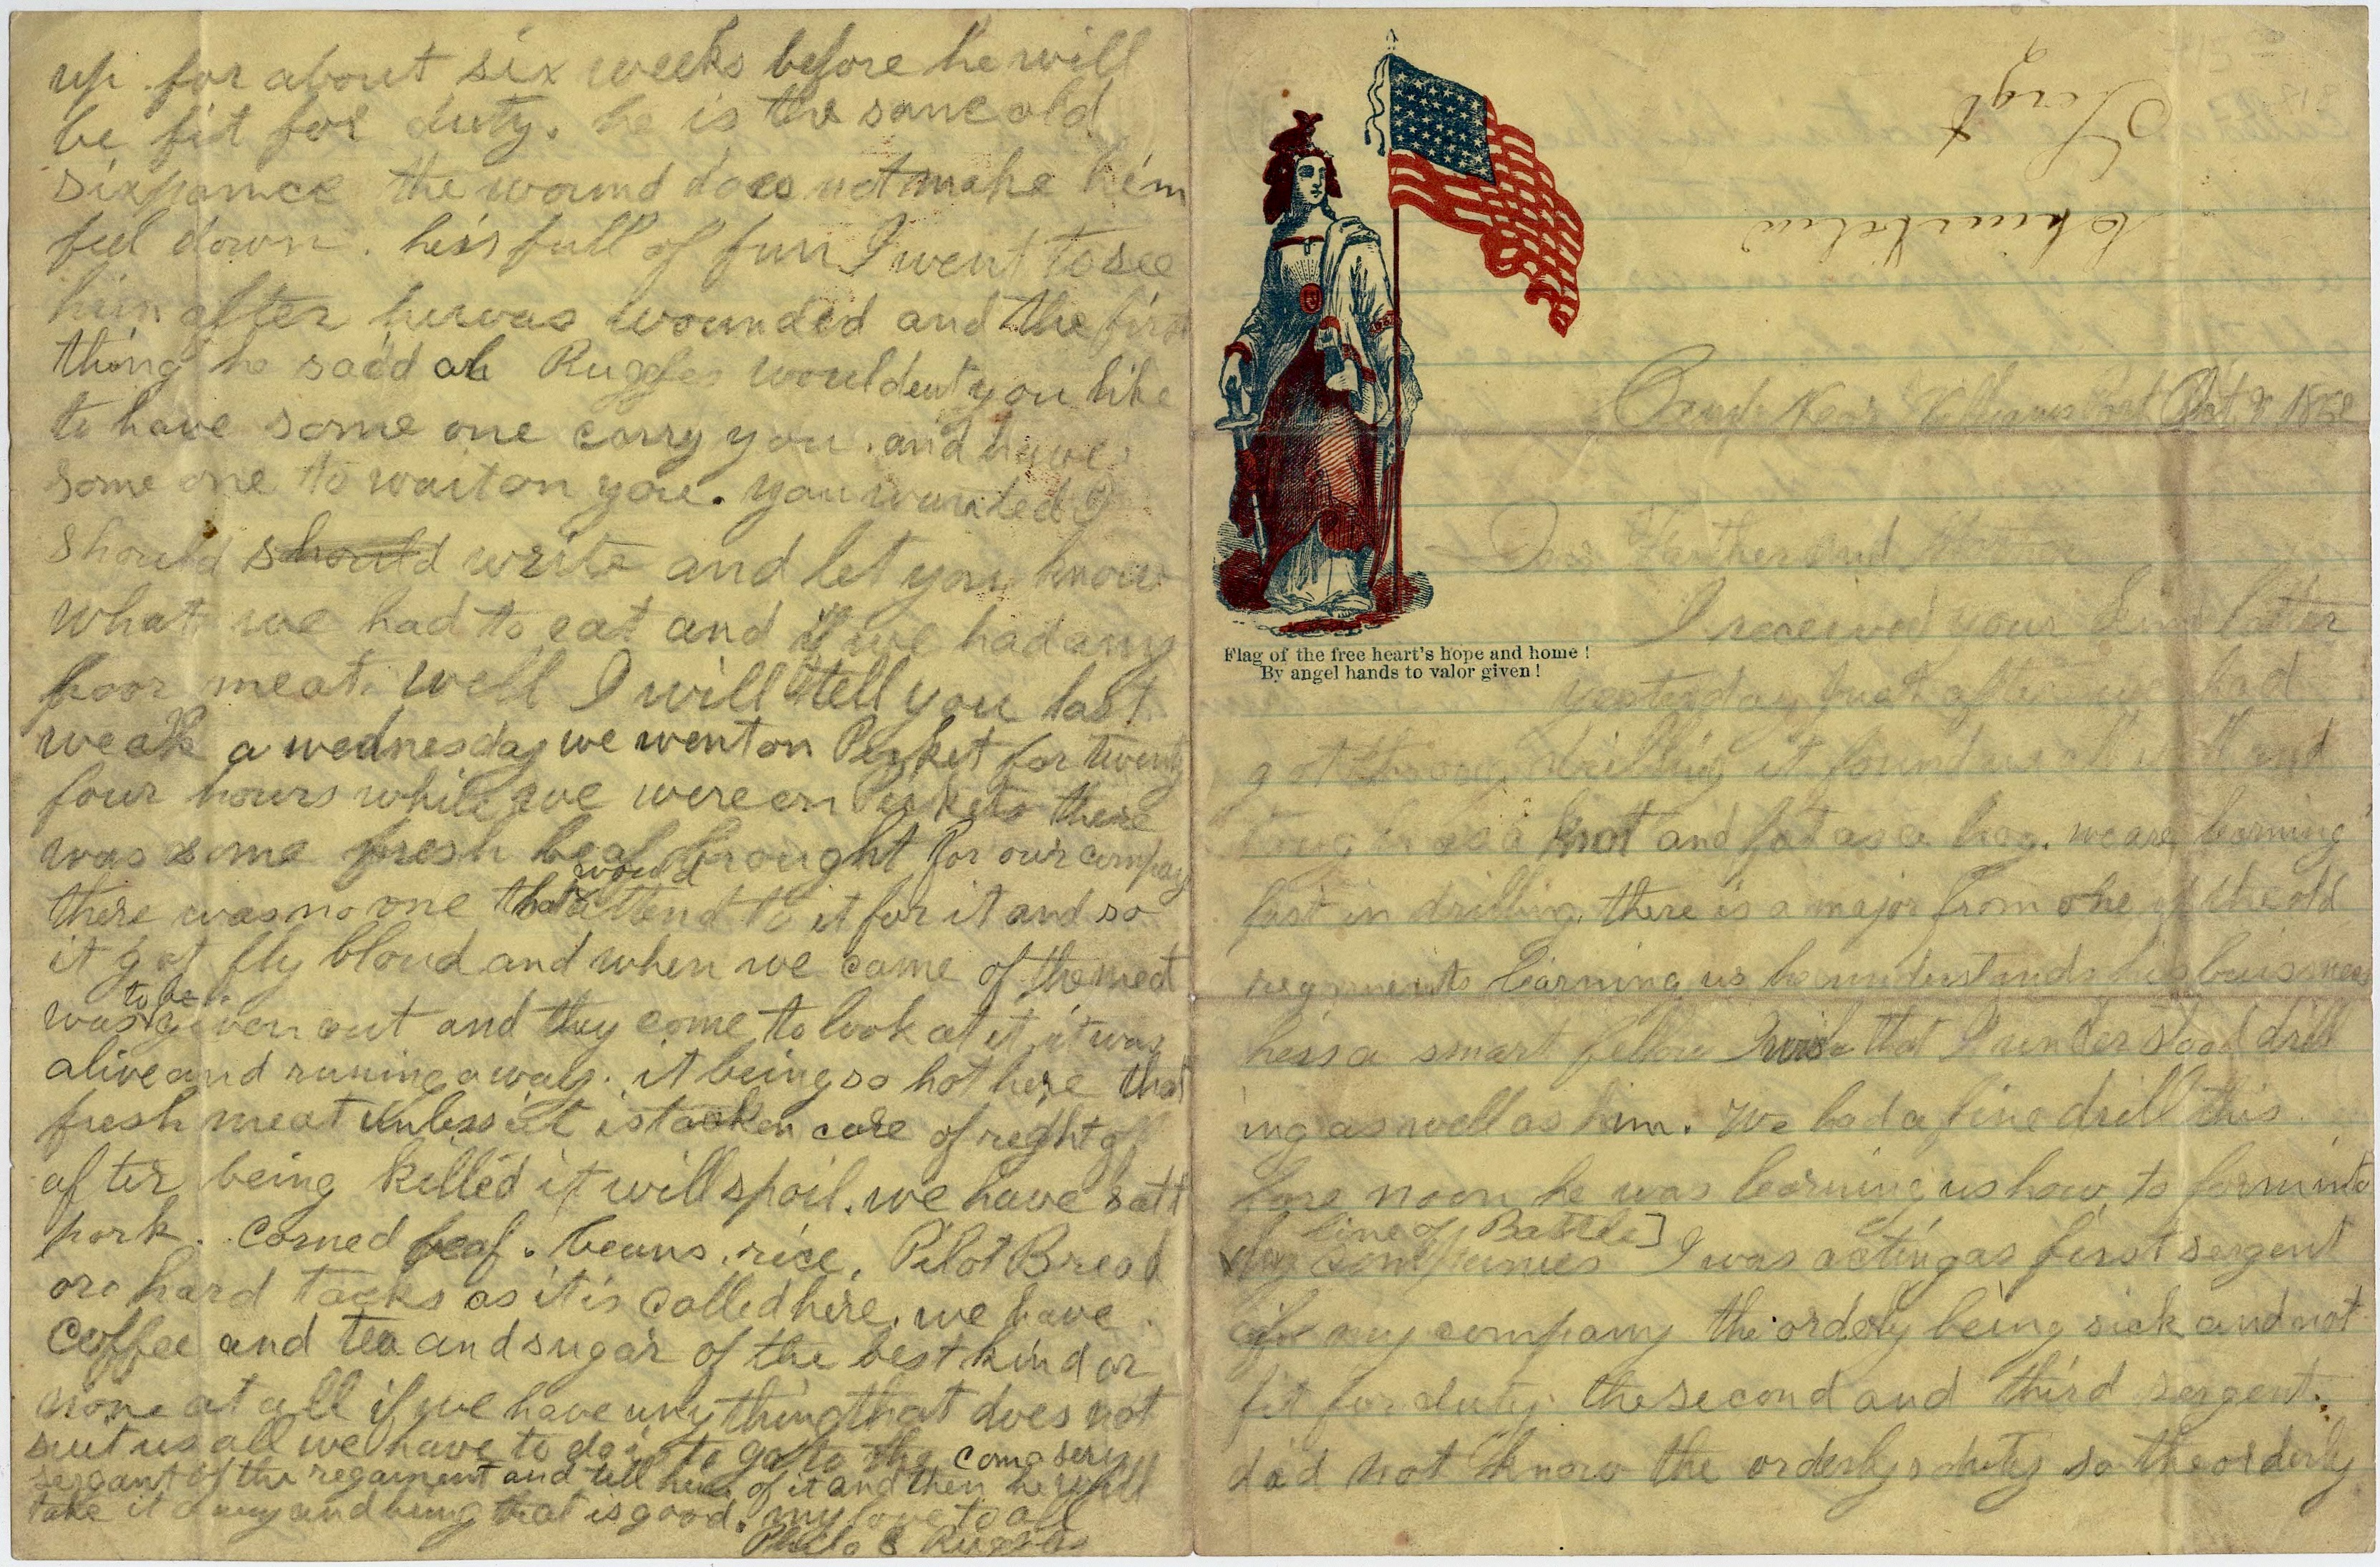 up for about six weeks before he will
be fit for duty. he is the same old
sixpance the wound does not make him
feel down. he's full of fun I went to see
him after he was wounded and the first
thing he said ah Ruggles wouldent you like
to have some one carry you. and have
some one to wait on you. you wanted I
should should write and let you know
what we had to eat and if we had any
poor meat. well I will tell you last
weak a wednesday we went on Picket for twenty
four hours while we were on Pickets there
was some fresh beaf brought for our compay
there was no one that would attend to it for it and so
it got fly bloud and when we came of the meat
was to be given out and they come to look at it, it was
alive and runing away. it being so hot here that
fresh meat unless it is tacken care of right of
after being killed it will spoil. we have salt
pork. Corned beaf. beans. rice. Pilot Bread
ore hard tacks as it is called here. we have
Coffee and tea and sugar of the best kind or
none at all if we have any thing that does not
suit us all we have to do is to go to the comasery
sergant of the regament and tell him of it and then he will
take it away and bring that is good. my love to all
Philo Ruggles
Sergt
Camp Near Williams Port Oct 1862
Dear Farther and Mother
I received your kind letter
Flag of the free heart's hope and home !
By angel hands to valor given !
yesterday just after we had
got through drilling it found us all well and
tough as a knot and fat as a hog. we are learning
fast in drilling. there is a major from one of the old
regments learning us he understands his buisness
he's a smart fellow I wish that I understood drill
ing as well as him. We had a fine drill this
fore noon he was learning us how to form into
line of Battle]
by companies I was acting as first sergent
of my company the orderly being sick and not
fit for duty. the second and third sergent.
did not know the orderlys duty so the orderly